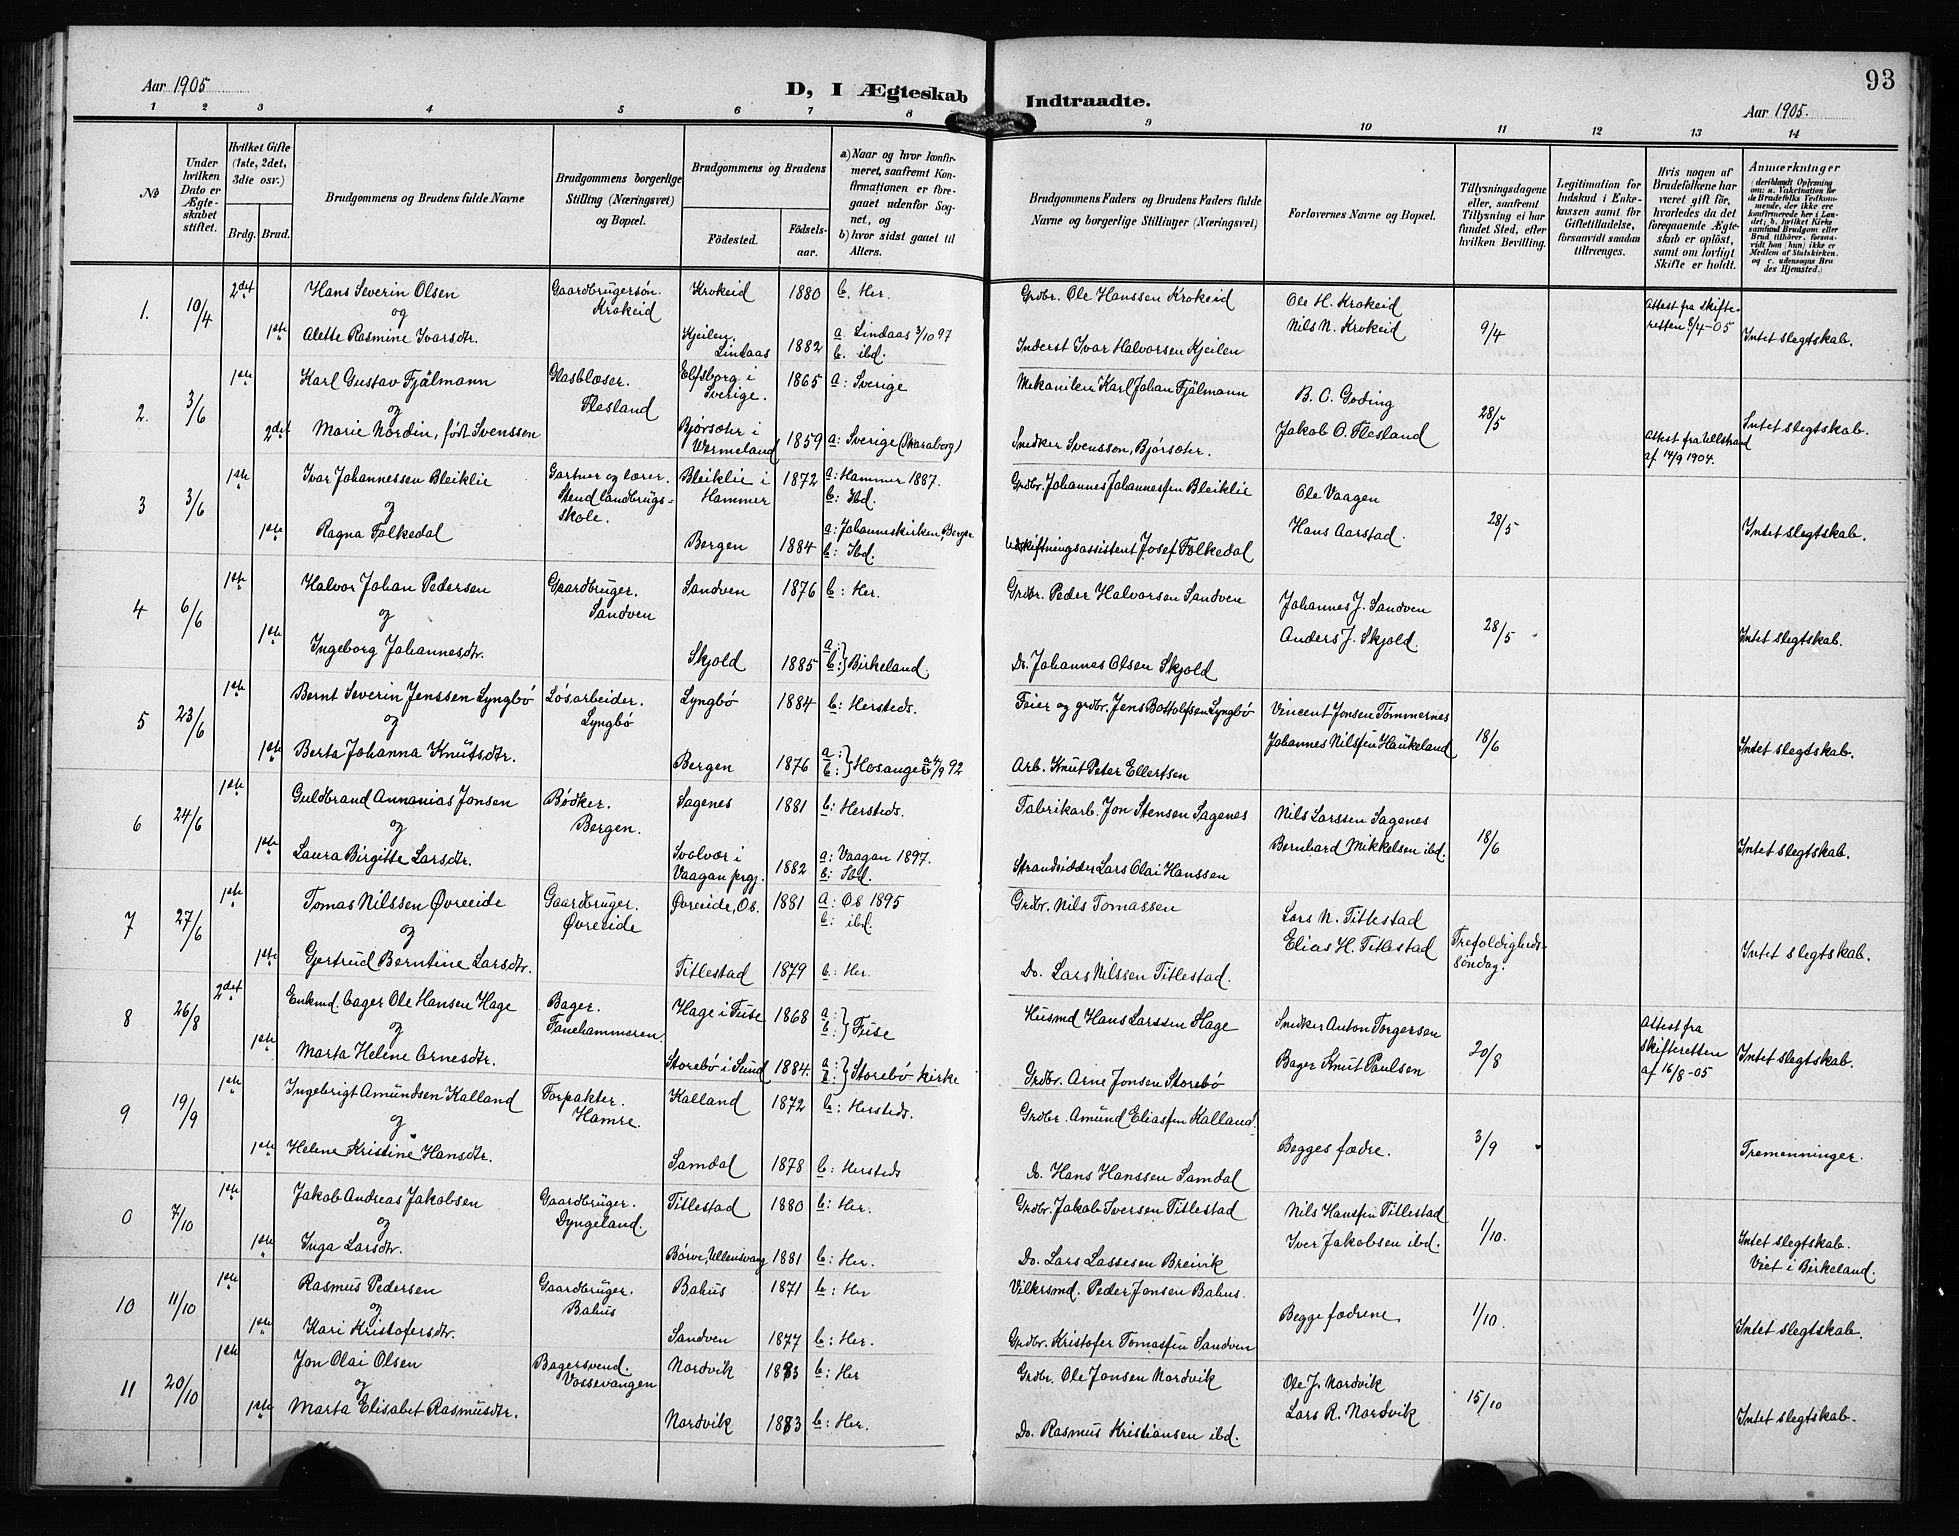 93
Aar 1905
D, I Ægteskab Indtraadte.
Aar 1905.
1 2 3 4 5 6 7 8 9 10 11 12 13 14
№
Under hvilken Dato er Ægteskabet stiftet.
Hvilket Gifte (1ste, 2det, 3die osv.)
Brdg. Brud.
Brudgommens og Brudens fulde Navne
Brudgommens borgerlige Stilling (Næringsvei) og Bopæl.
Brudgommens og Brudens
Fødested.
Fødselsaar.
a) Naar og hvor konfirmeret, saafremt Konfirmationen er foregaaet udenfor Sognet, og
b) hvor sidst gaaet til Alters.
Brudgommens Faders og Brudens Faders fulde Navne og borgerlige Stillinger (Næringsvei)
Forlovernes Navne og Bopæl.
Tillysningsdagene eller, saafremt Tillysning ei har fundet Sted, efter hvilken Bevilling.
Legitimation for Indskud i Enkekassen samt for Giftetilladelse, forsaavidt saadan tiltrænges.
Hvis nogen af Brudefolkene har været gift før, hvorledes da det foregaaende Ægteskab er opløst, samt om lovligt Skifte er holdt.
Anmerkninger
(deriblandt Opførsel om: a. Vakcination for de Brudefolks Vedkommende, der ikke ere konfirmerede her i Landet; b. hvilket Kirkesamfund Brudgom eller Brud tilhører, forsaavidt han (hun) ikke er Medlem af Statskirken, og c. udensogns Brudes Hjemsted.)
1. 10/4 2det Hans Severin Olsen Gaardbrugersøn. Krokeid Krokeid 1880 b. Her. Grdbr. Ole Hanssen Krokeid Ole H. Krokeid 9/4 Attest fra skifteretten 8/4-05 Intet slegtskab.
og
1ste Alette Rasmine Ivarsdtr. Kjeilen, Lindaas 1882 a Lindaas 3/10 97 b. ibd. Inderst Ivar Halvorsen Kjeilen Nils N. Krokeid
2. 3/6 1ste Karl Gustav Fjälmann Glasblæser. Flesland Elfsborg i Sverige. 1865 a: Sverige Mekaniker Karl Johan Fjälmann B. C. Goding 28/5 Intet slegtskab.
og
2det Marie Nordin, født Svenssen Bjørsæter i Wermeland 1859 a: Sverige (Skaraborg) Snedker Svensson, Bjørsæter. Jakob O. Flesland Attest fra Ullstrand af 14/9 1904.
3 3/6 1ste Ivar Johannessen Bleiklie Gartner og lærer. Stend landbrugsskole. Bleiklie i Hammer 1872 a: Hammer 1887. b: Ibd. Grdbr. Johannes Johannessen Bleiklie Ole Vaagen 28/5 Intet slegtskab.
og
1ste Ragna Folkedal Bergen 1884 a: Johanneskirken, Bergen b: Ibd. Udskiftningsassistent Josef Folkedal Hans Aarstad.
4 6/6 1ste Halvor Johan Pedersen Gaardbruger. Sandven Sandven 1876 b: Her. Grdbr. Peder Halvorsen Sandven Johannes J. Sandven 28/5 Intet slegtskab.
og
1ste Ingeborg Johannesdtr. Skjold 1885 a: b: } Birkeland. Do. Johannes Olsen Skjold Anders J. Skjold.
5 23/6 1ste Bernt Severin Jenssen Lyngbö Løsarbeider. Lyngbö Lyngbö 1884 b: Hersteds. Feier og grdbr. Jens Bottolfsen Lyngbö Vincent Jonsen Tömmernes 18/6 Intet slegtskab.
og
1ste Berta Johanna Knutsdtr. Bergen 1876 a: b: } Hosanger 4/9 92 Arb. Knut Peter Ellertsen Johannes Nilssen Haukeland
6 24/6 1ste Guldbrand Annanias Jonsen Bødker. Bergen. Sagenes 1881 b: Hersteds. Fabrikarb. Jon Stensen Sagenes Nils Larssen Sagenes 18/6 Intet slegtskab.
og
1ste Laura Birgitte Larsdtr. Svolvær i Vaagan prgj. 1882 a: Vaagan 1897. b: Ibd. Strandsidder Lars Olai Hanssen Bernhard Mikkelsen ibd.
7 27/6 1ste Tomas Nilssen Øvreeide Gaardbruger. Øvreeide Øvreeide, Os. 1881 a: Os 1895 b: ibd. Grdbr. Nils Tomassen Lars N. Titlestad Trefoldighedssøndag. Intet slegtskab.
og
1ste Gjertrud Berntine Larsdtr. Titlestad 1879 b: Her. Do. Lars Nilssen Titlestad. Elias H. Titlestad
8 26/8 2det Enkmd. bager Ole Hansen Hage Bager. Fanehammeren. Hage i Fuse 1868 a: b: } Fuse Husmd Hans Larssen Hage Snedker Anton Torgersen 20/8 Attest fra skifteretten af 16/8-05 Intet slegtskab.
og
1ste Marta Helene Arnesdtr. Storebö i Sund 1884. a: b: } Storebö kirke Grdbr. Arne Jonsen Storebö Bager Knut Paulsen
9 19/9 1ste Ingebrigt Amundsen Kalland Forpakter. Hamre. Kalland 1872 b: Hersteds. Grdbr. Amund Eliassen Kalland. Begges fædre. 3/9 Tremenninger.
og
1ste Helene Kristine Hansdtr. Samdal 1878 b: Hersteds Do. Hans Hanssen Samdal
0 7/10 1ste Jakob Andreas Jakobsen Gaardbruger. Dyngeland. Titlestad 1880 b: Her. Grdbr. Jakob Iversen Titlestad Nils Hanssen Titlestad 1/10. Intet slegtskab. Viet i Birkeland.
og
1ste Inga Larsdtr. Börve, Ullensvang 1881 b: Her. Do. Lars Lassesen Breivik Iver Jakobsen ibd.
10 11/10 1ste Rasmus Pedersen Gaardbruger. Bahus Bahus 1871 b: Her Vilkersmd. Peder Jonsen Bahus. Begge fædrene 1/10. Intet slegtskab.
og
1ste Kari Kristofersdtr. Sandven 1877 b: Her. Grdbr. Kristofer Tomassen Sandven
11 20/10 1ste Jon Olai Olsen Bagersvend. Vossevangen Nordvik 1883 b: Her Grdbr. Ole Jonsen Nordvik Ole J. Nordvik 15/10 Intet slegtskab.
og
1ste Marta Elisabet Rasmusdtr. Nordvik 1883 b: Her. Do. Rasmus Kristiansen ibd. Lars R. Nordvik